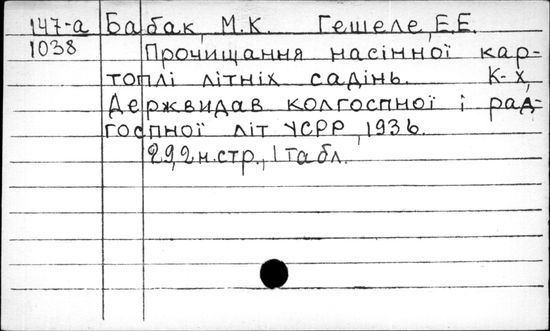 147-а Бабак, М.К. Гешеле, Е.Е.
1038 Прочищання насінної кар-
топлі літніх садінь. К-х,
Держвидав колгоспної і рад-
госпної літ УСРР, 1936.
29,2 н.стр., 1 табл.